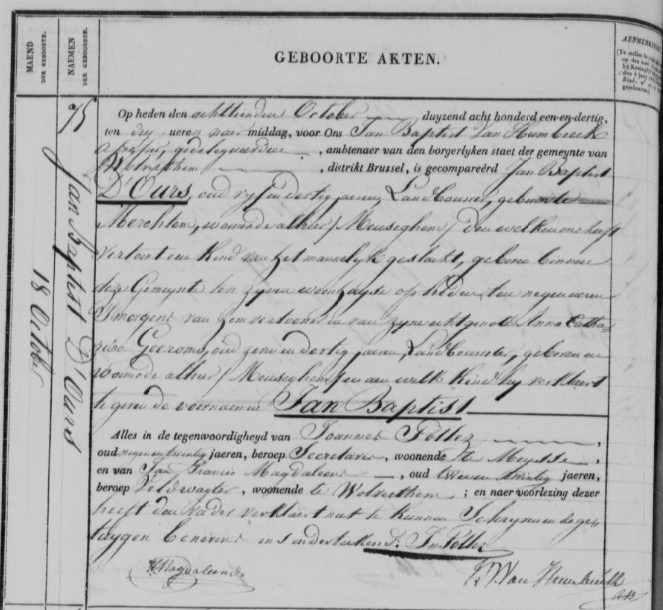 MAEND
DER GEBOORTE.
NAEMEN
DER GEBOORTE.
GEBOORTE AKTEN.
75
Jan Baptist D'Ours
18 October
Op heden den achttienden October duyzend acht honderd een-en-dertig,
ten dry ueren naer middag, voor Ons Jan Baptist Van Humbeeck
gedelegueerden, ambtenaer van den borgerlyken staet der gemeynte van
Wolverthem, distrikt Brussel, is gecompareërd Jan Baptist
D'Ours, oud vyf en dertig jaeren, Landbouwer, geboren te
Merchtem, woonende alhier / Meuseghem / den welken ons heeft
vertoont een kind van het mannelyk geslacht, geboren binnen
deze Gemeynte ten zynen woonhuyse op heden ten negen ueren
s'morgens van hem vertooner en van zyne echtgenote Anna Catha-
rina Geeroms, oud zeven en dertig jaeren, Landbouwster, geboren en
woonende alhier / Meuseghem / en aen welk kind hy verklaert
te geven de voornaemen Jan Baptist
Alles in de tegenwoordigheyd van Joannes Potter,
oud negen en twintig jaeren, beroep Secretaris, woonende te Meysse
en van Jan Francis Magdaleens, oud twee en twintig jaeren,
beroep Veldwagter, woonende te Wolverthem; en naer voorlezing dezer
heeft den vader verklaert niet te kunnen schryven en de ge-
tuygen benevens ons onderteekend. J. Potter
Magdaleens
J. B. Van Humbeeck